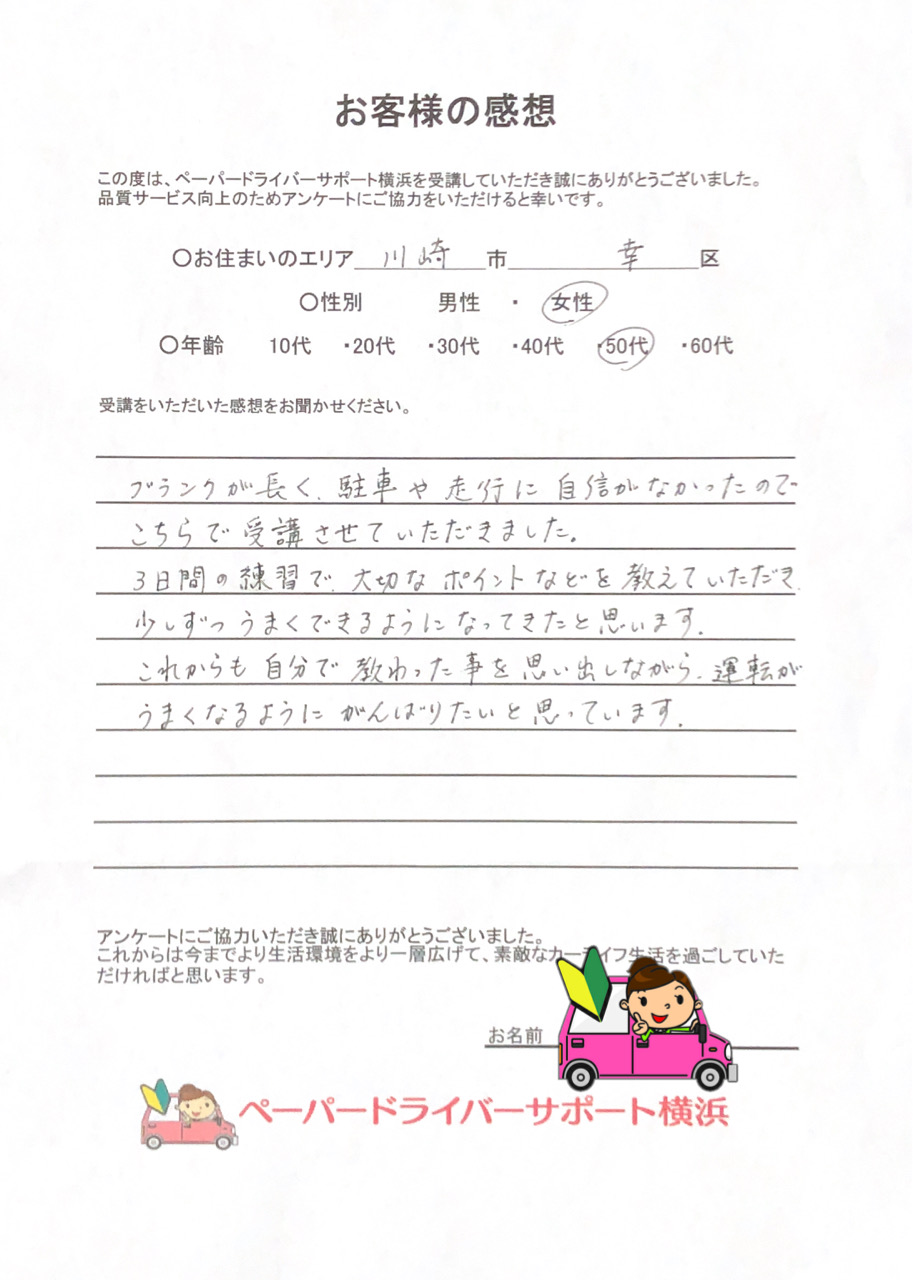 お客様の感想
この度は、ペーパードライバーサポート横浜を受講していただき誠にありがとうございました。
品質サービス向上のためアンケートにご協力をいただけると幸いです。
〇お住まいのエリア 川崎 市 幸 区
〇性別 男性 ・ 女性
〇年齢 10代 ・20代 ・30代 ・40代 ・50代 ・60代
受講をいただいた感想をお聞かせください。
ブランクが長く、駐車や走行に自信がなかったので
こちらで受講させていただきました。
3日間の練習で、大切なポイントなどを教えていただき、
少しずつうまくできるようになってきたと思います。
これからも自分で教わった事を思い出しながら、運転が
うまくなるようにがんばりたいと思っています。
アンケートにご協力いただき誠にありがとうございました。
これからは今までより生活環境をより一層広げて、素敵なカーライフ生活を過ごしていた
だければと思います。
お名前
ペーパードライバーサポート横浜